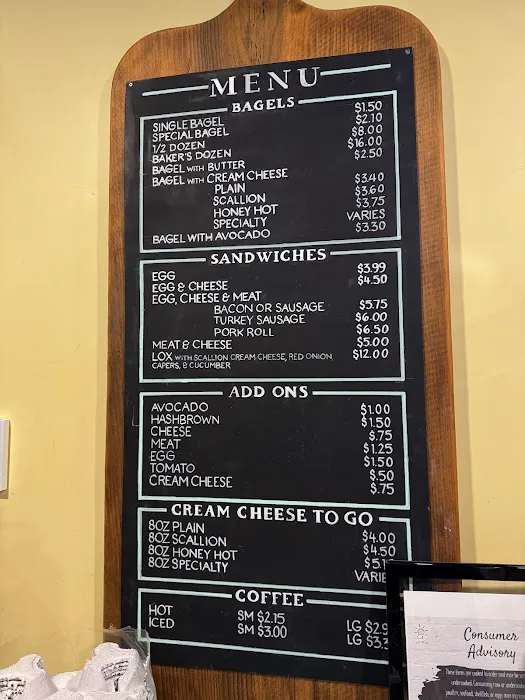 MENU
BAGELS
SINGLE BAGEL $1.50
SPECIAL BAGEL $2.10
1/2 DOZEN $8.00
BAKER'S DOZEN $16.00
BAGEL WITH BUTTER $2.50
BAGEL WITH CREAM CHEESE
PLAIN $3.40
SCALLION $3.60
HONEY HOT $3.75
SPECIALTY VARIES
BAGEL WITH AVOCADO $3.30
SANDWICHES
EGG $3.99
EGG & CHEESE $4.50
EGG, CHEESE & MEAT
BACON OR SAUSAGE $5.75
TURKEY SAUSAGE $6.00
PORK ROLL $6.50
MEAT & CHEESE $5.00
LOX WITH SCALLION CREAM CHEESE, RED ONION, $12.00
CAPERS, & CUCUMBER
ADD ONS
AVOCADO $1.00
HASHBROWN $1.50
CHEESE $.75
MEAT $1.25
EGG $1.50
TOMATO $.50
CREAM CHEESE $.75
CREAM CHEESE TO GO
8OZ PLAIN $4.00
8OZ SCALLION $4.50
8OZ HONEY HOT
8OZ SPECIALTY
COFFEE
HOT SM $2.15 LG
ICED SM $3.00 LG
Consumer
Advisory
These items are cooked to order and may be
undercooked. Consuming raw or
poultry, seafood, shellfish, or eggs may